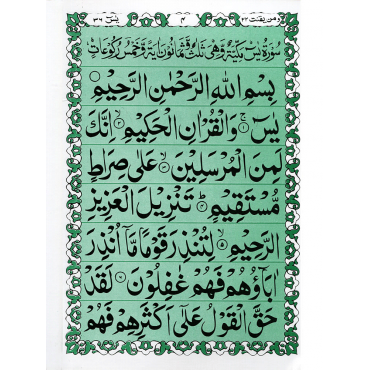 ومن يقنت ٢٢ ٣ يٰسٓ ٣٦
سُوْرَةُ يٰسٓ مَكِّيَّةٌ وَّهِيَ ثَلٰثٌ وَّثَمَانُوْنَ اٰيَةً وَّخَمْسُ رُكُوْعَاتٍ
بِسْمِ اللهِ الرَّحْمٰنِ الرَّحِيْمِ
يٰسٓ ۚ ۝۱ وَالْقُرْاٰنِ الْحَكِيْمِ ۝۲ اِنَّكَ
لَمِنَ الْمُرْسَلِيْنَ ۝۳ عَلٰى صِرَاطٍ
مُّسْتَقِيْمٍ ۝۴ تَنْزِيْلَ الْعَزِيْزِ
الرَّحِيْمِ ۝۵ لِتُنْذِرَ قَوْمًا مَّاۤ اُنْذِرَ
اٰبَآؤُهُمْ فَهُمْ غٰفِلُوْنَ ۝۶ لَقَدْ
حَقَّ الْقَوْلُ عَلٰۤى اَكْثَرِهِمْ فَهُمْ